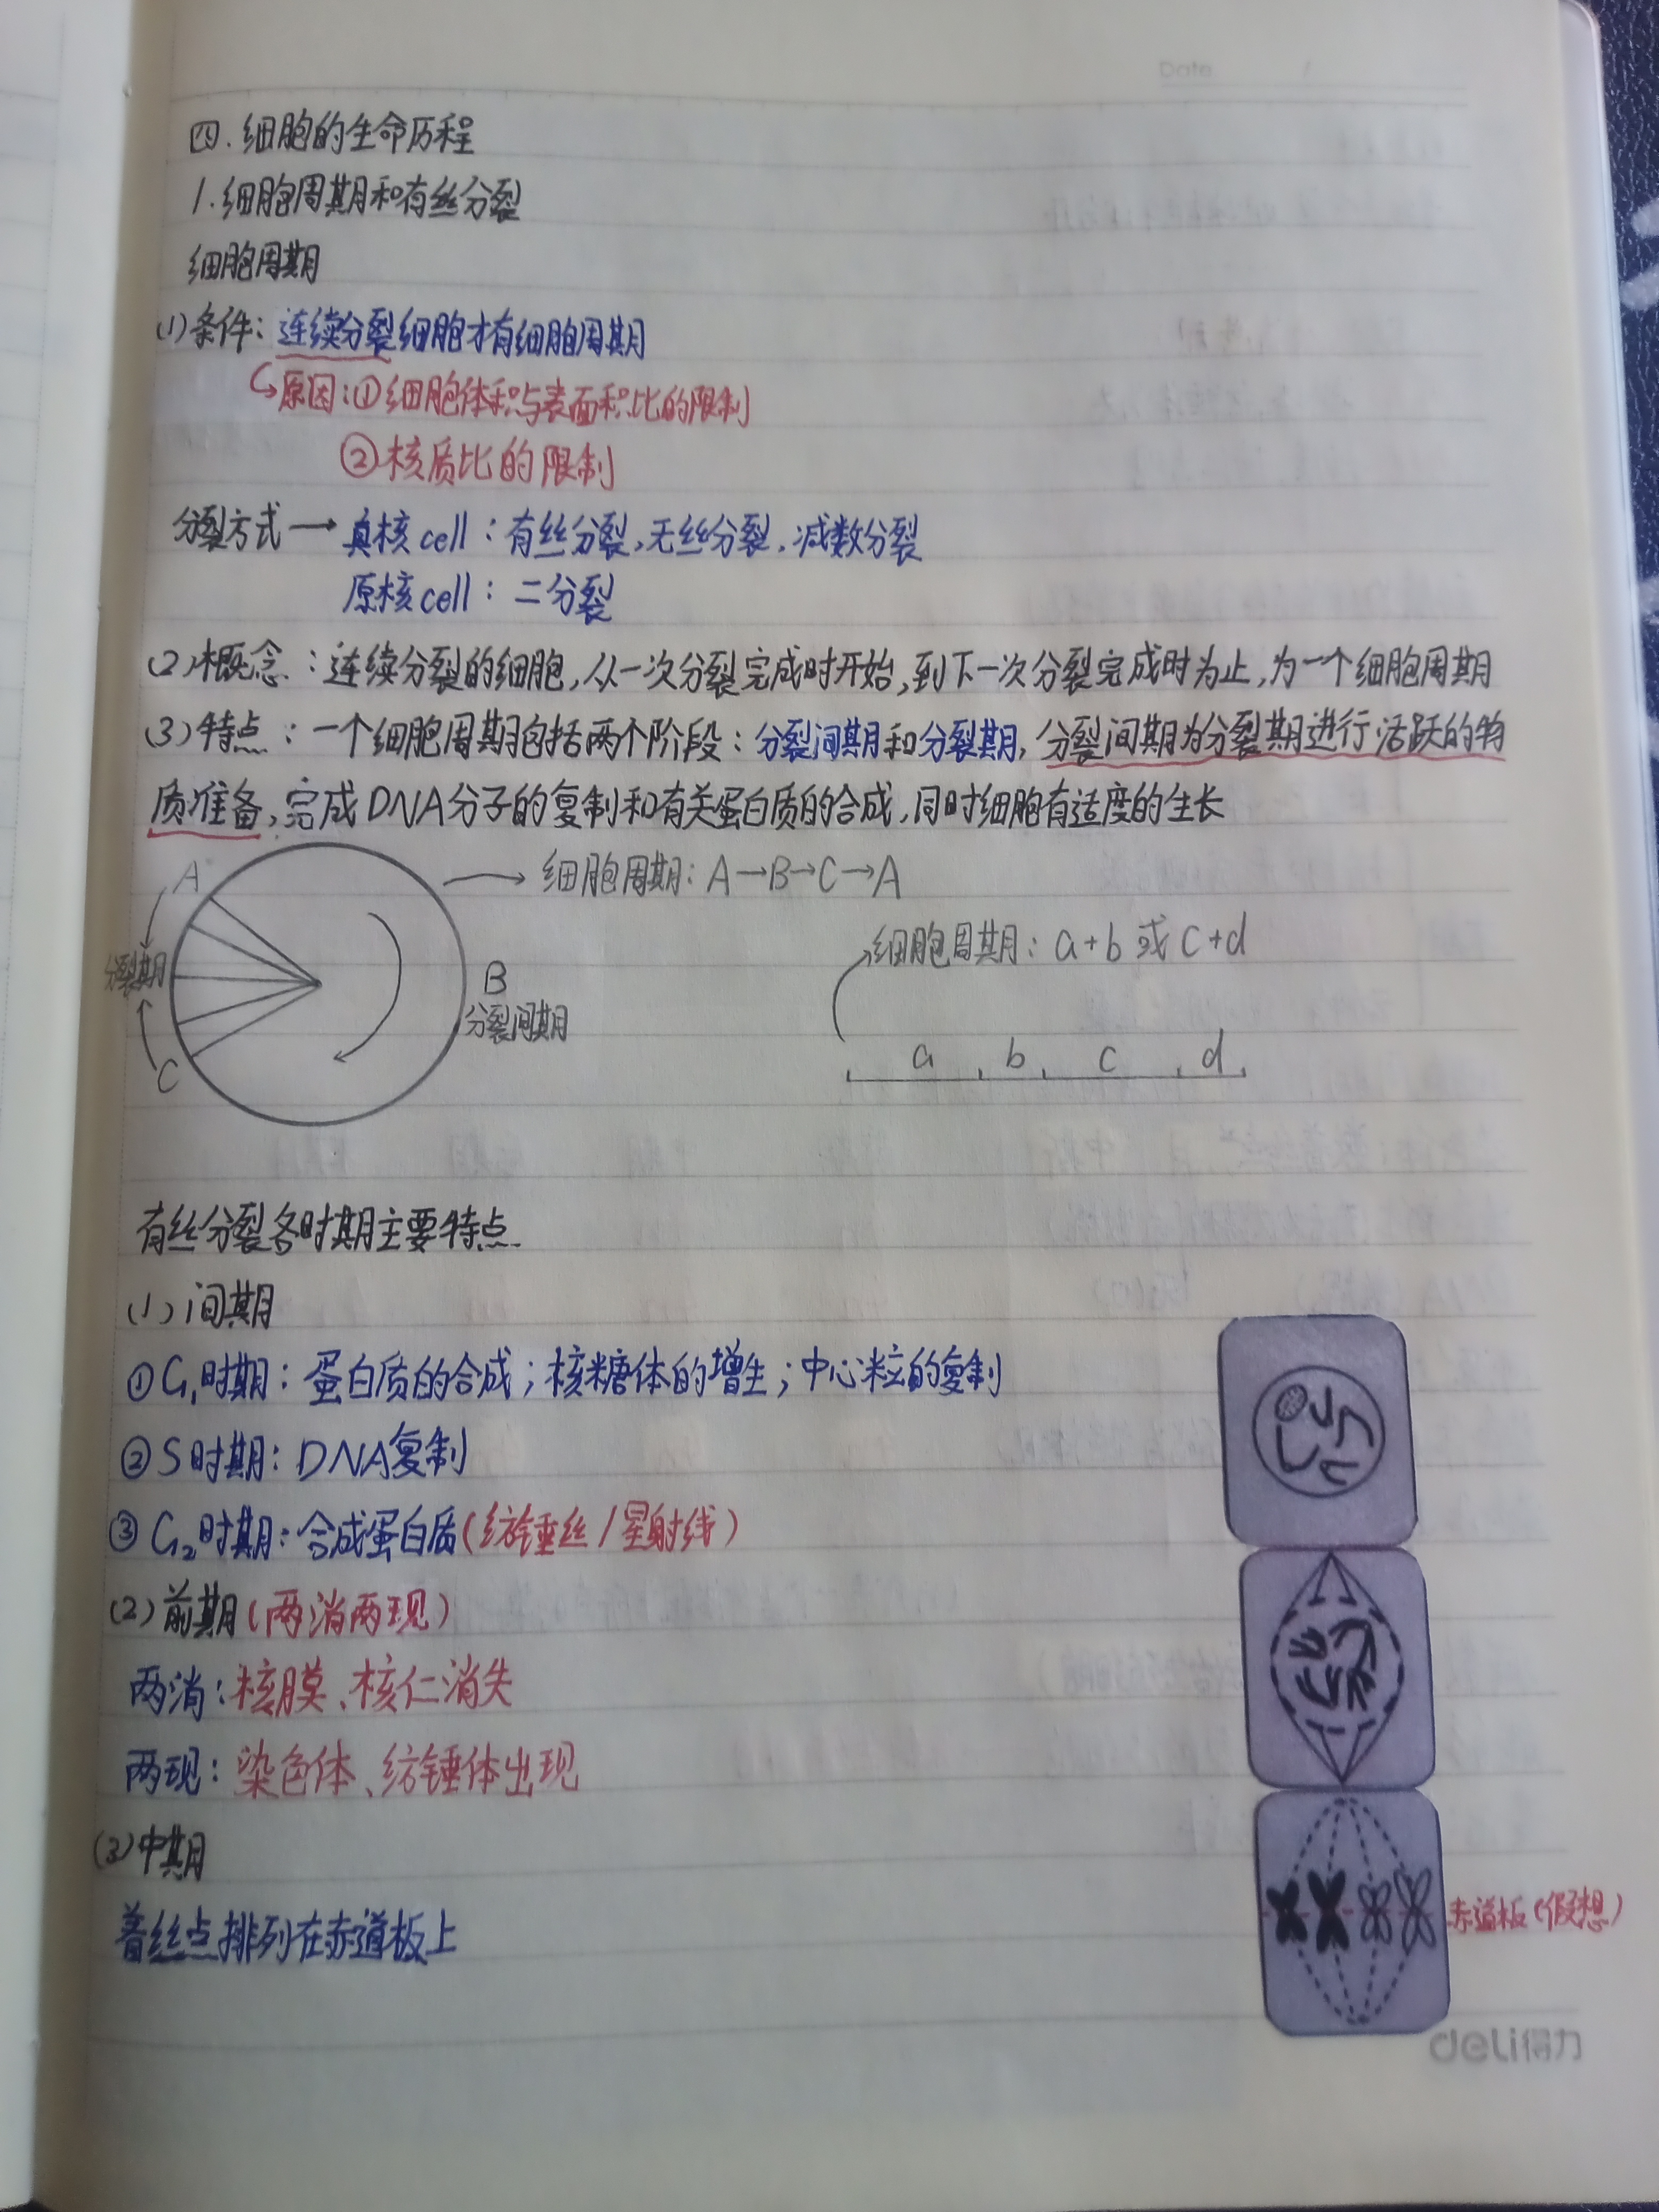 Date /
四.细胞的生命历程
1.细胞周期和有丝分裂
细胞周期
(1)条件:连续分裂细胞才有细胞周期
原因:①细胞体积与表面积比的限制
②核质比的限制
分裂方式→真核cell:有丝分裂,无丝分裂,减数分裂
原核cell:二分裂
(2)概念:连续分裂的细胞,从一次分裂完成时开始,到下一次分裂完成时为止,为一个细胞周期
(3)特点:一个细胞周期包括两个阶段:分裂间期和分裂期,分裂间期为分裂期进行活跃的物
质准备,完成DNA分子的复制和有关蛋白质的合成,同时细胞有适度的生长
A
→细胞周期:A→B→C→A
分裂期
B
分裂间期
C
细胞周期:a+b 或 c+d
a b c d
有丝分裂各时期主要特点
(1)间期
①G₁时期:蛋白质的合成;核糖体的增生;中心粒的复制
②S时期:DNA复制
③G₂时期:合成蛋白质(纺锤丝/星射线)
(2)前期(两消两现)
两消:核膜、核仁消失
两现:染色体、纺锤体出现
(3)中期
着丝点排列在赤道板上
赤道板(假想)
deli得力